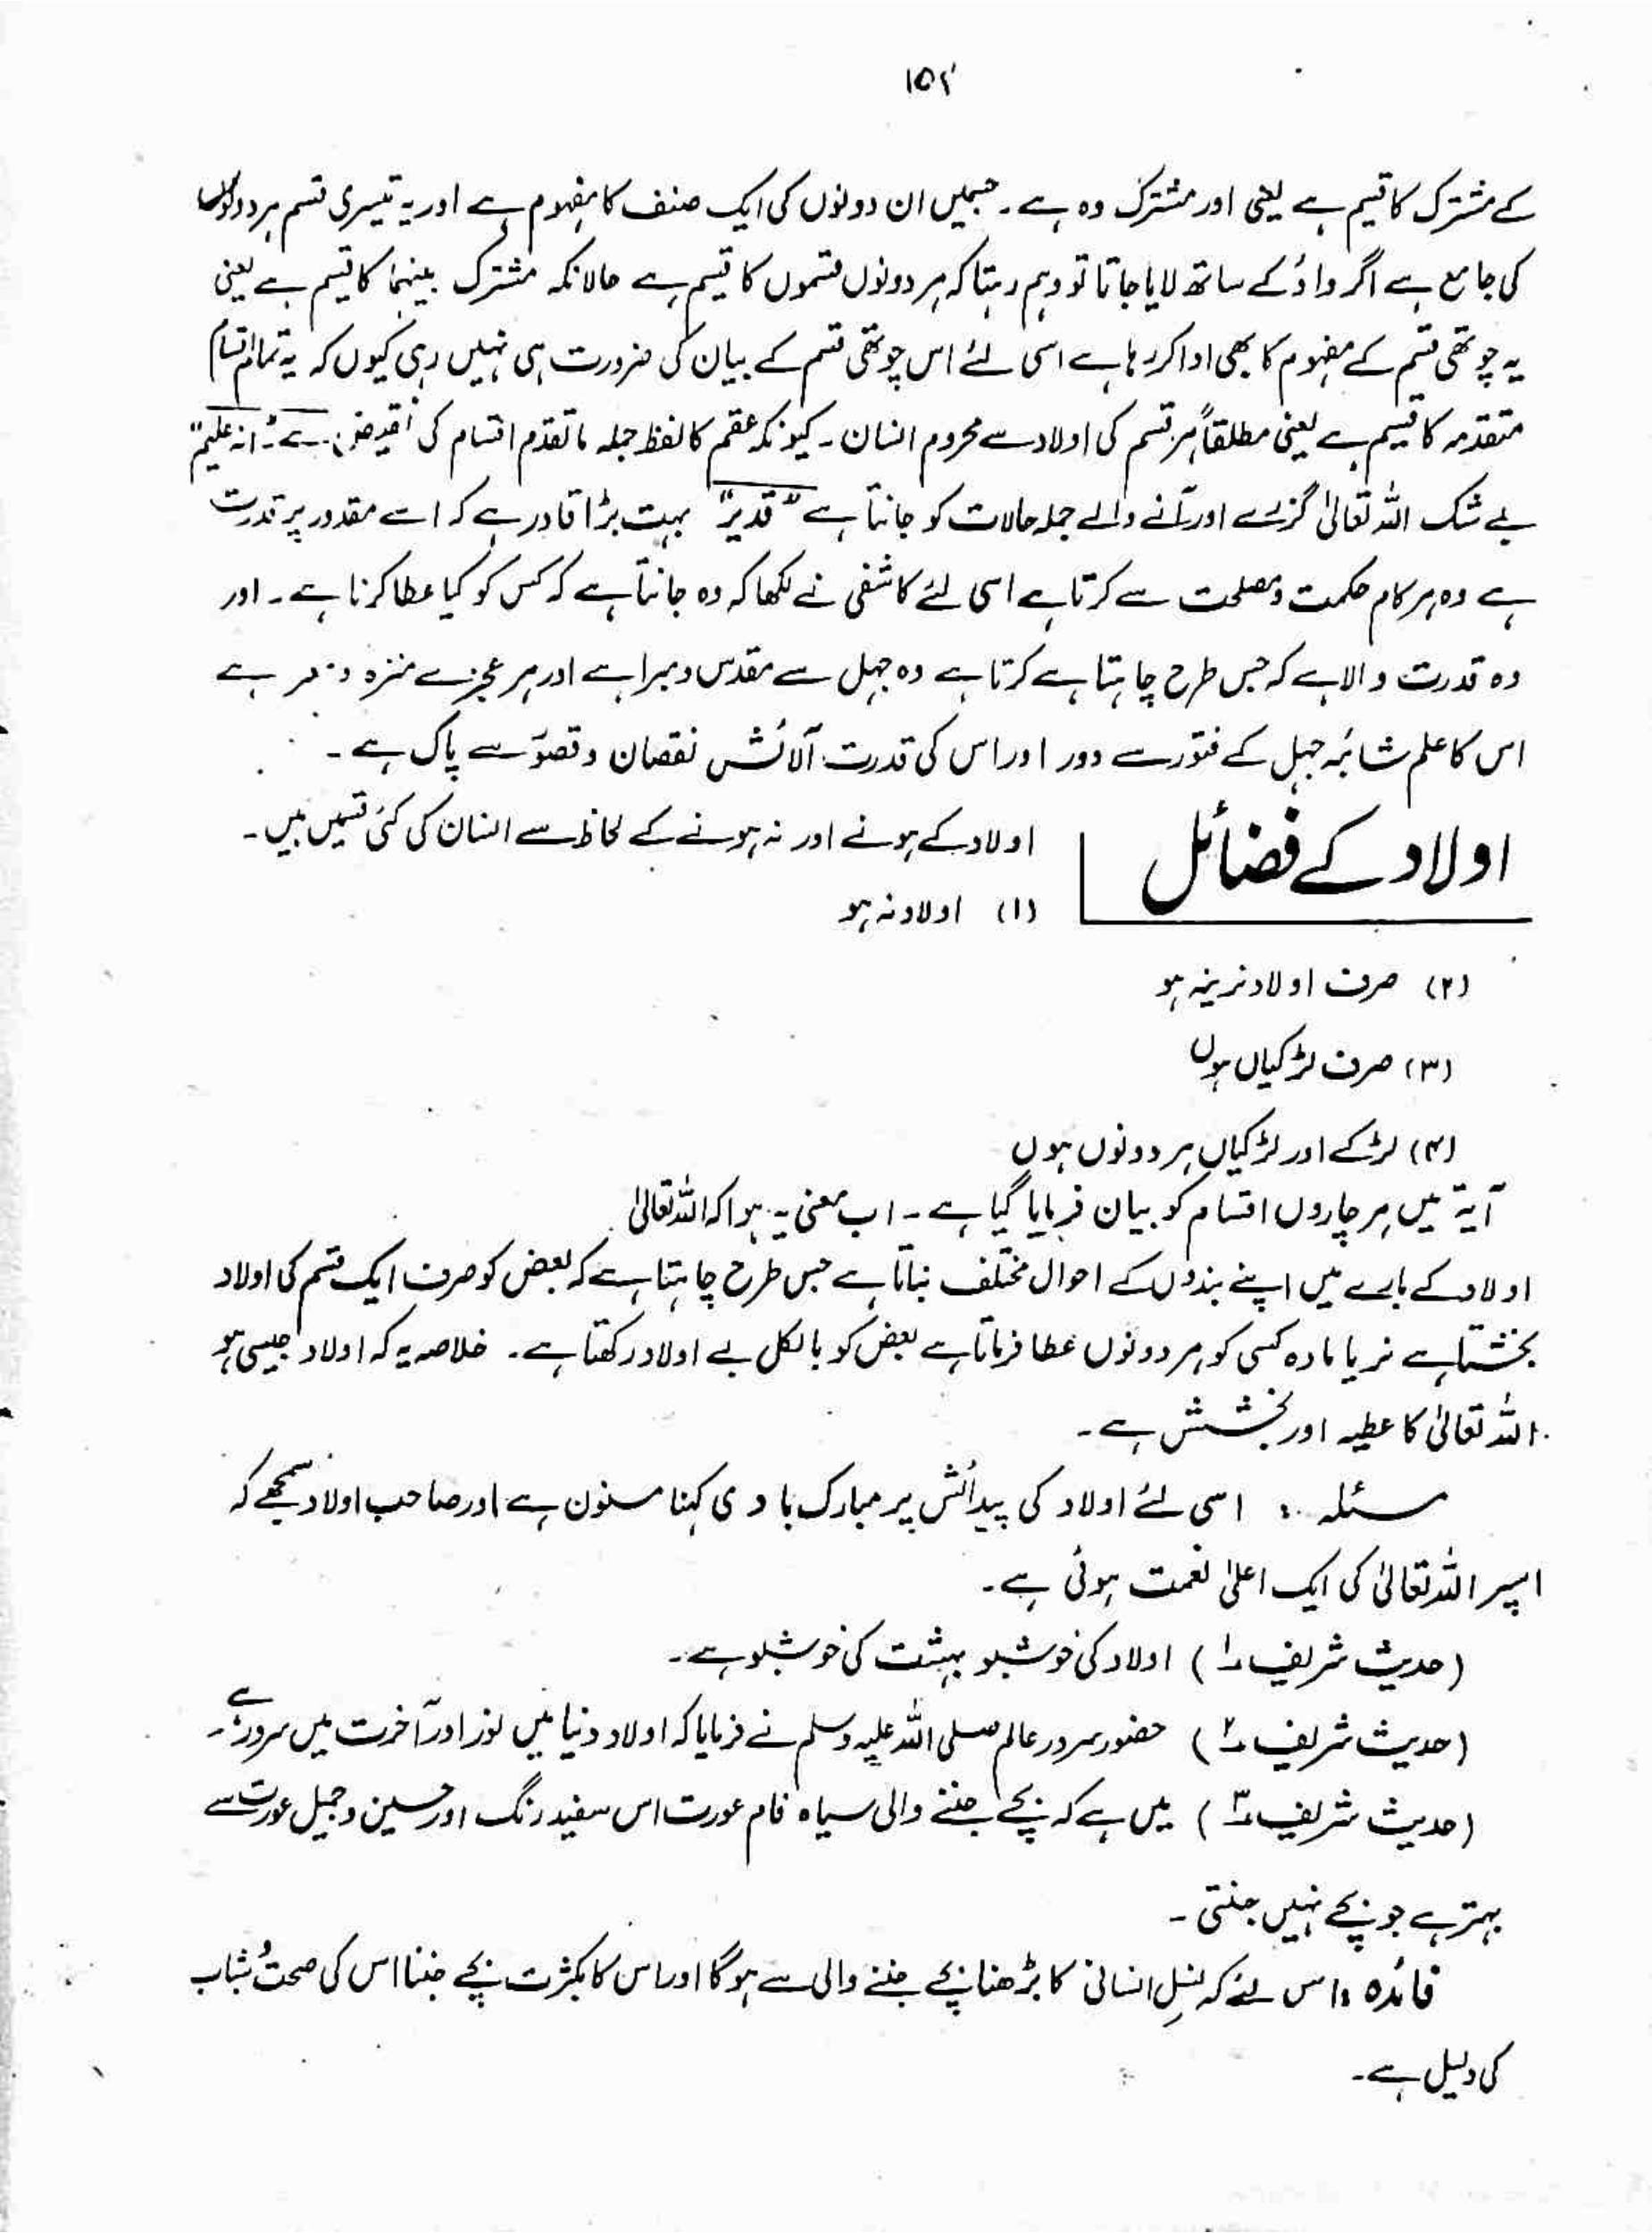 ۱۵۲
کے مشترک کا قسیم ہے یعنی اور مشترک وہ ہے ۔ جسمیں ان دونوں کی ایک صنف کا مفہوم ہے اور یہ تیسری قسم ہر دونوں
کی جامع ہے اگر واؤ کے ساتھ لایا جاتا تو وہم رہتا کہ ہر دونوں قسموں کا قسیم ہے حالانکہ مشترک بینہما کا قسیم ہے یعنی
یہ چوتھی قسم کے مفہوم کا بھی ادا کر رہا ہے اسی لئے اس چوتھی قسم کے بیان کی ضرورت ہی نہیں رہی کیوں کہ یہ تمام اقسام
متقدمہ کا قسیم ہے یعنی مطلقاً ہر قسم کی اولاد سے محروم انسان ۔ کیونکہ عقم کا لفظ جملہ ماتقدم اقسام کی نقیض ہے ۔ "انہ علیم"
بے شک اللہ تعالیٰ گزرے اور آنے والے جملہ حالات کو جانتا ہے "قدیر" بہت بڑا قادر ہے کہ اسے مقدور پر قدرت
ہے وہ ہر کام حکمت و مصلحت سے کرتا ہے اسی لئے کاشفی نے لکھا کہ وہ جانتا ہے کہ کس کو کیا عطا کرنا ہے ۔ اور
وہ قدرت والا ہے کہ جس طرح چاہتا ہے کرتا ہے وہ جہل سے مقدس و مبرا ہے اور ہر عجز سے منزہ و ہے
اس کا علم شائبہ جہل کے فتور سے دور اور اس کی قدرت آلائش نقصان و قصور سے پاک ہے ۔
اولاد کے فضائل
اولاد کے ہونے اور نہ ہونے کے لحاظ سے انسان کی کئی قسمیں ہیں ۔
(۱) اولاد نہ ہو
(۲) صرف اولاد نرینہ ہو
(۳) صرف لڑکیاں ہوں
(۴) لڑکے اور لڑکیاں ہر دونوں ہوں
آیۃ میں ہر چاروں اقسام کو بیان فرمایا گیا ہے ۔ اب معنی یہ ہوا کہ اللہ تعالیٰ
اولاد کے بارے میں اپنے بندوں کے احوال مختلف بناتا ہے جس طرح چاہتا ہے کہ بعض کو صرف ایک قسم کی اولاد
بخشتا ہے نر یا مادہ کسی کو ہر دونوں عطا فرماتا ہے بعض کو بالکل بے اولاد رکھتا ہے ۔ خلاصہ یہ کہ اولاد جیسی ہو
اللہ تعالیٰ کا عطیہ اور بخشش ہے ۔
مسئلہ : اسی لئے اولاد کی پیدائش پر مبارک بادی کہنا مسنون ہے اور صاحب اولاد سمجھے کہ
اسپر اللہ تعالیٰ کی ایک اعلیٰ نعمت ہوئی ہے ۔
(حدیث شریف ۱) اولاد کی خوشبو بہشت کی خوشبو ہے ۔
(حدیث شریف ۲) حضور سرور عالم صلی اللہ علیہ وسلم نے فرمایا کہ اولاد دنیا میں نور اور آخرت میں سرور ہے ۔
(حدیث شریف ۳) میں ہے کہ بچے جننے والی سیاہ فام عورت اس سفید رنگ اور حسین و جمیل عورت سے
بہتر ہے جو بچے نہیں جنتی ۔
فائدہ : اس لئے کہ نسل انسانی کا بڑھنا بچے جننے والی سے ہوگا اور اس کا بکثرت بچے جننا اس کی صحت و شباب
کی دلیل ہے ۔